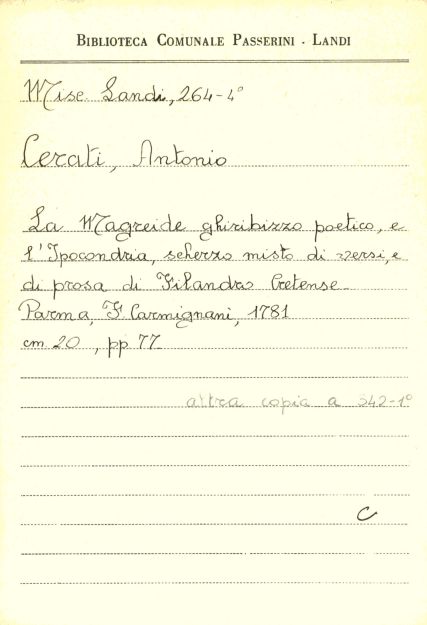 BIBLIOTECA COMUNALE PASSERINI - LANDI
Misc. Landi, 264-4°
Cerati, Antonio
La Magreide ghiribizzo poetico, e
l'Ipocondria, scherzo misto di versi, e
di prosa di Filandro Cretense-
Parma, F. Carmignani, 1781
cm 20, pp 77
altra copia a 342-1°
C